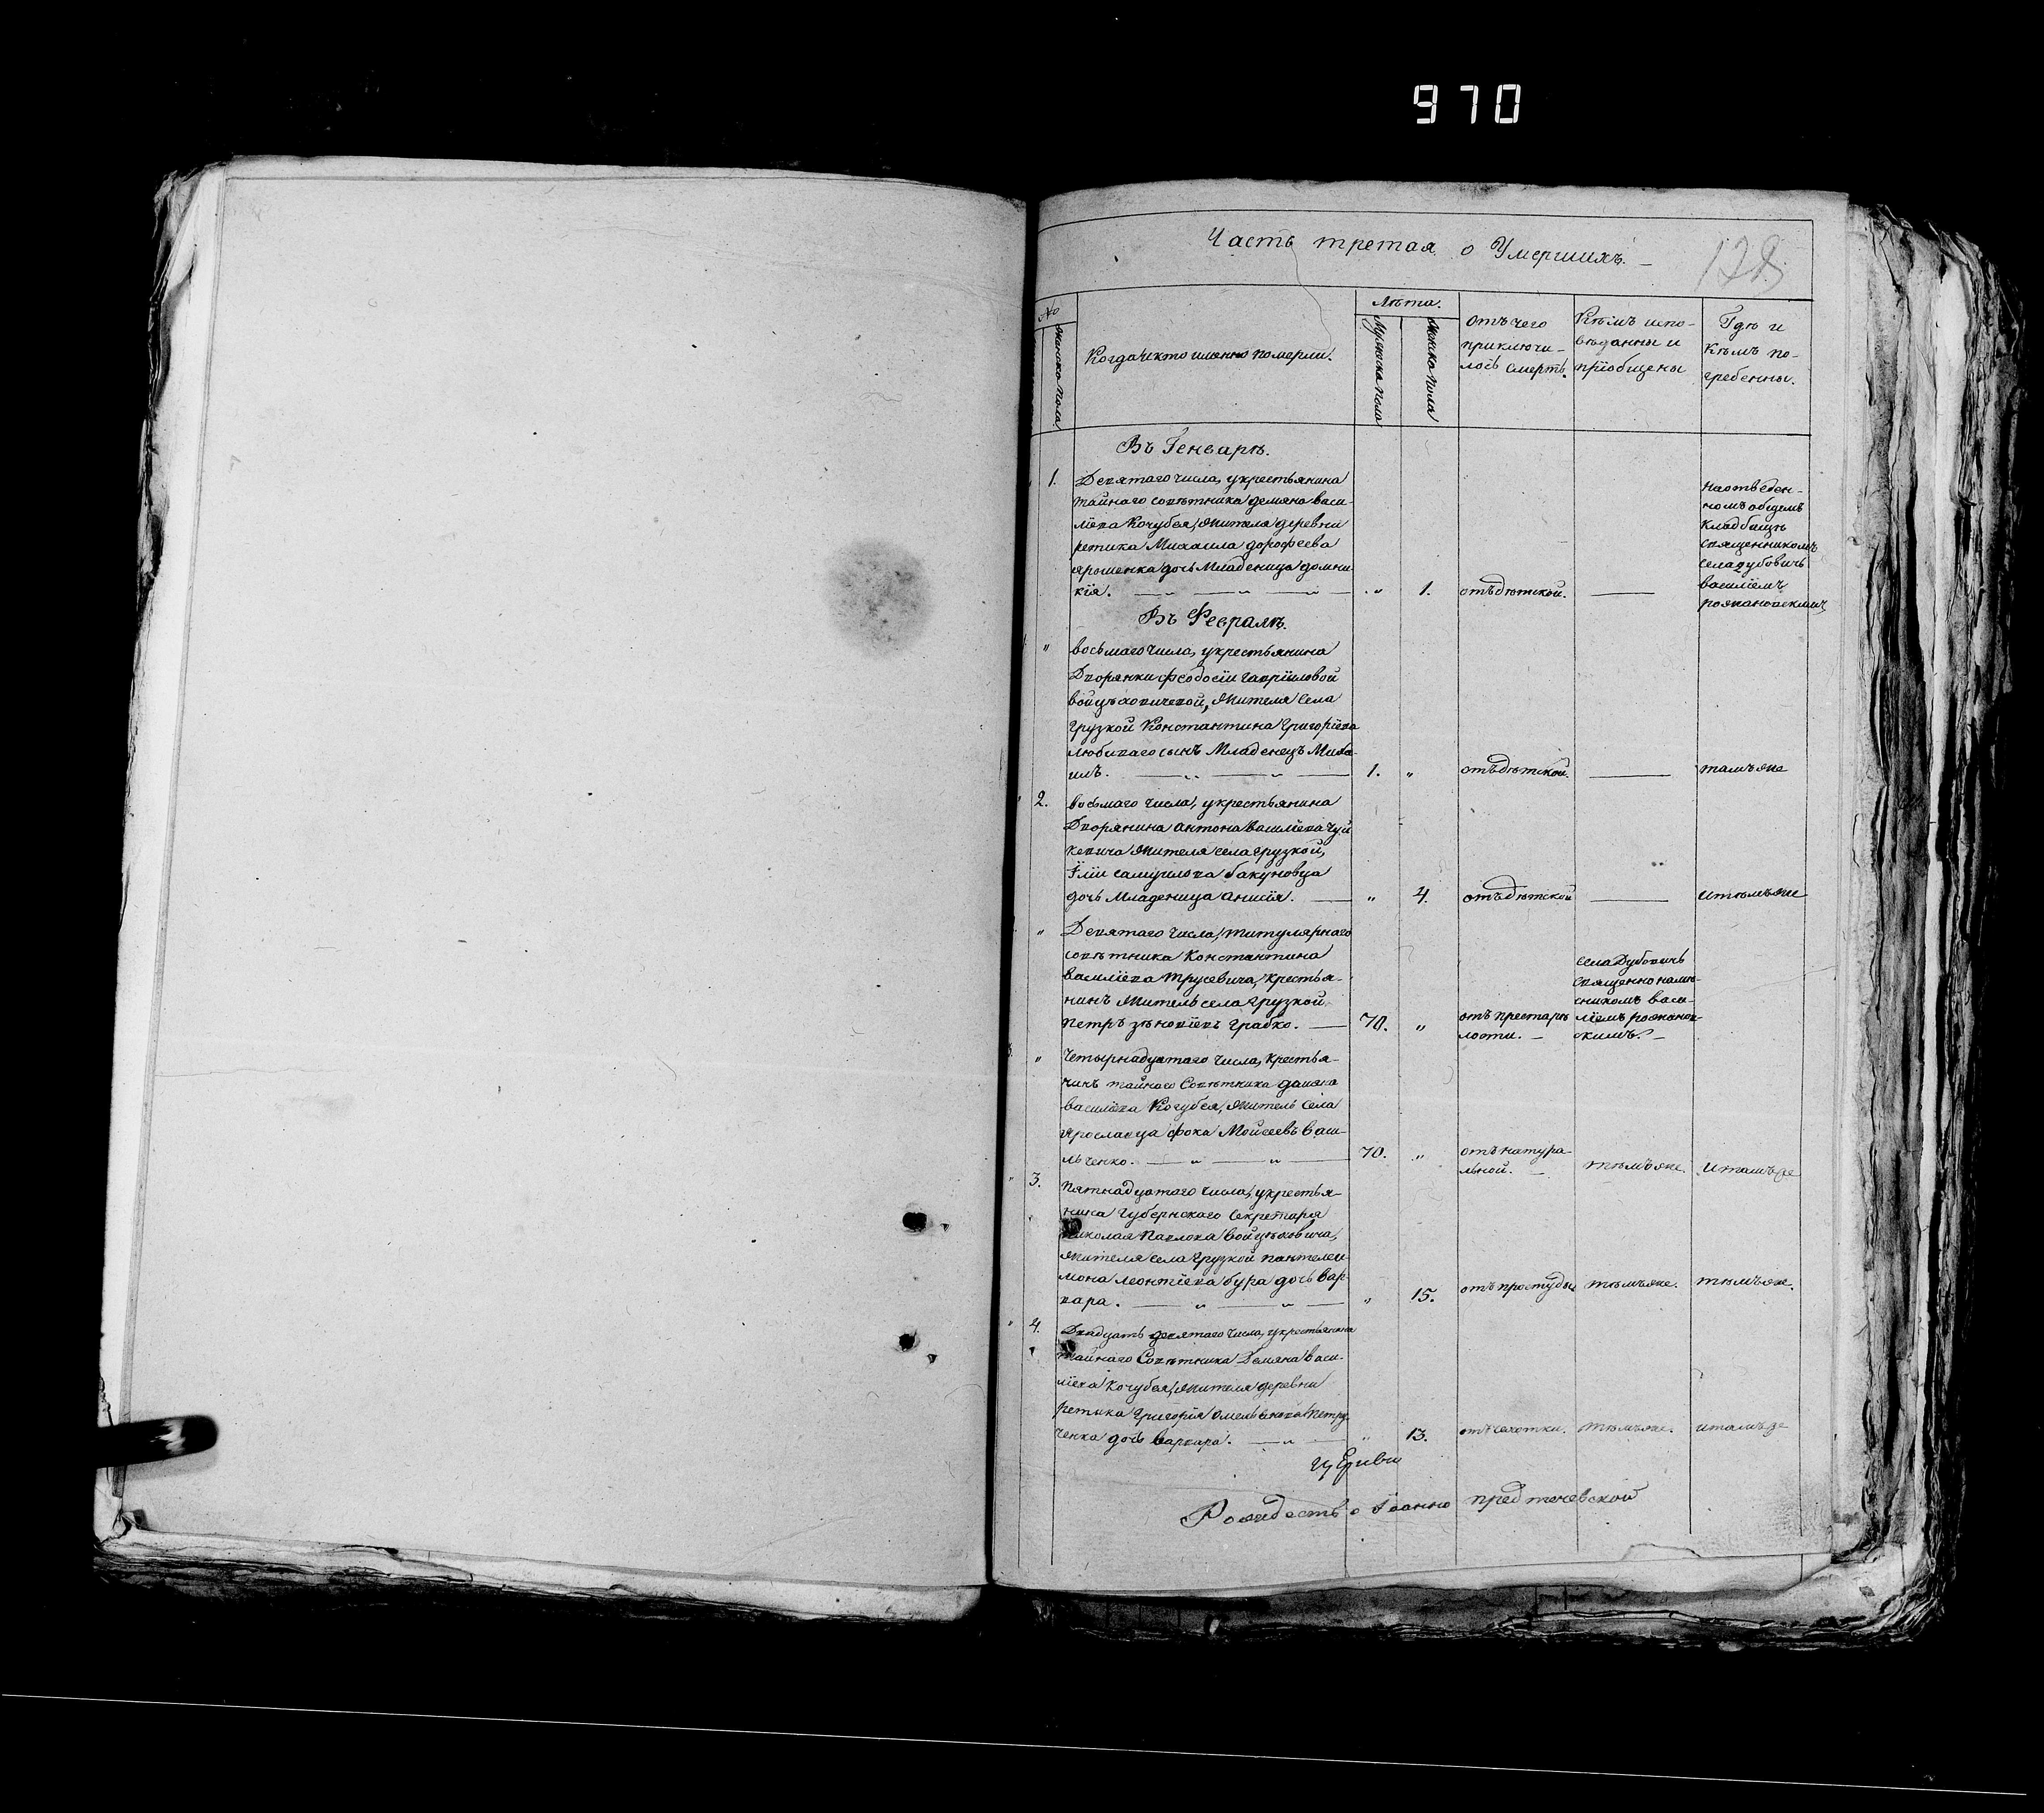 970
Часть третая о Умершихъ.
128
№
Женска пола
Когда и кто именно померли.
Лѣта.
Мужеска пола
Женска пола
Отъ чего
приключи-
лось смерть.
Кѣмъ испо-
вѣданны и
прïобщены
Гдѣ и
кѣмъ по-
гребенны.
Въ Генварѣ.
1.
Девятаго числа, у крестьянина
тайнаго совѣтника демяна васи-
лïева Кочубея, жителя деревни
ретика Михаила дорофеева
ярошенка дочь Младеница домни
кïя.
" 1. отъ дѣтской.
на отведен-
номъ общемъ
кладбищѣ
священникомъ
села дубовичь
василïемъ
рожановскимъ
Въ Февралѣ.
" восьмаго числа, у крестьянина
Дворянки феодосïи гаврïиловой
войцѣховичевой, жителя села
грузкой Константина Григорïева
любиваго сынъ Младенецъ Миха-
илъ. 1. " отъ дѣтской. тамъ же
2. восьмаго числа, у крестьянина
Дворянина антона василïева чуй
кевича жителя села грузкой,
Илïи самуилова бакуновца
дочь Младеница анисïя. " 4. отъ дѣтской и тѣмъ же
" Девятаго числа, титулярнаго
совѣтника Константина
василïева трусевича, крестья-
нинъ житель села грузкой
петръ зѣновïевъ грабко. 70. " отъ престарѣ
лости.
села Дубовичь
священнонамѣ-
сникомъ васи-
лïемъ рожанов-
скимъ.
" Четырнадцатаго числа, крестья-
нинъ тайнаго Совѣтника дамяна
василïева Кочубея, житель села
ярославца фока Мойсеевъ васи-
льченко. 70. " отъ натура-
льной. тѣмъ же. и тамъ де
3. Пятнадцатаго числа, у крестья-
нина губернскаго секретаря
николая павлова войцѣховича,
жителя села грузкой пантелеи-
мона леонтïева бура дочь вар-
вара. " 15. отъ простуды тѣмъ же. тѣмъ же.
4. Двадцать девятаго числа, у крестьянина
тайнаго Совѣтника Демяна васи-
лïева кочубея, жителя деревни
ретика григорïя омельянова петру
ченка дочь варвара. " 13. отъ сухотки. тѣмъ же. и тамъ де
Церкви
Рождество Iоанно предтечевской